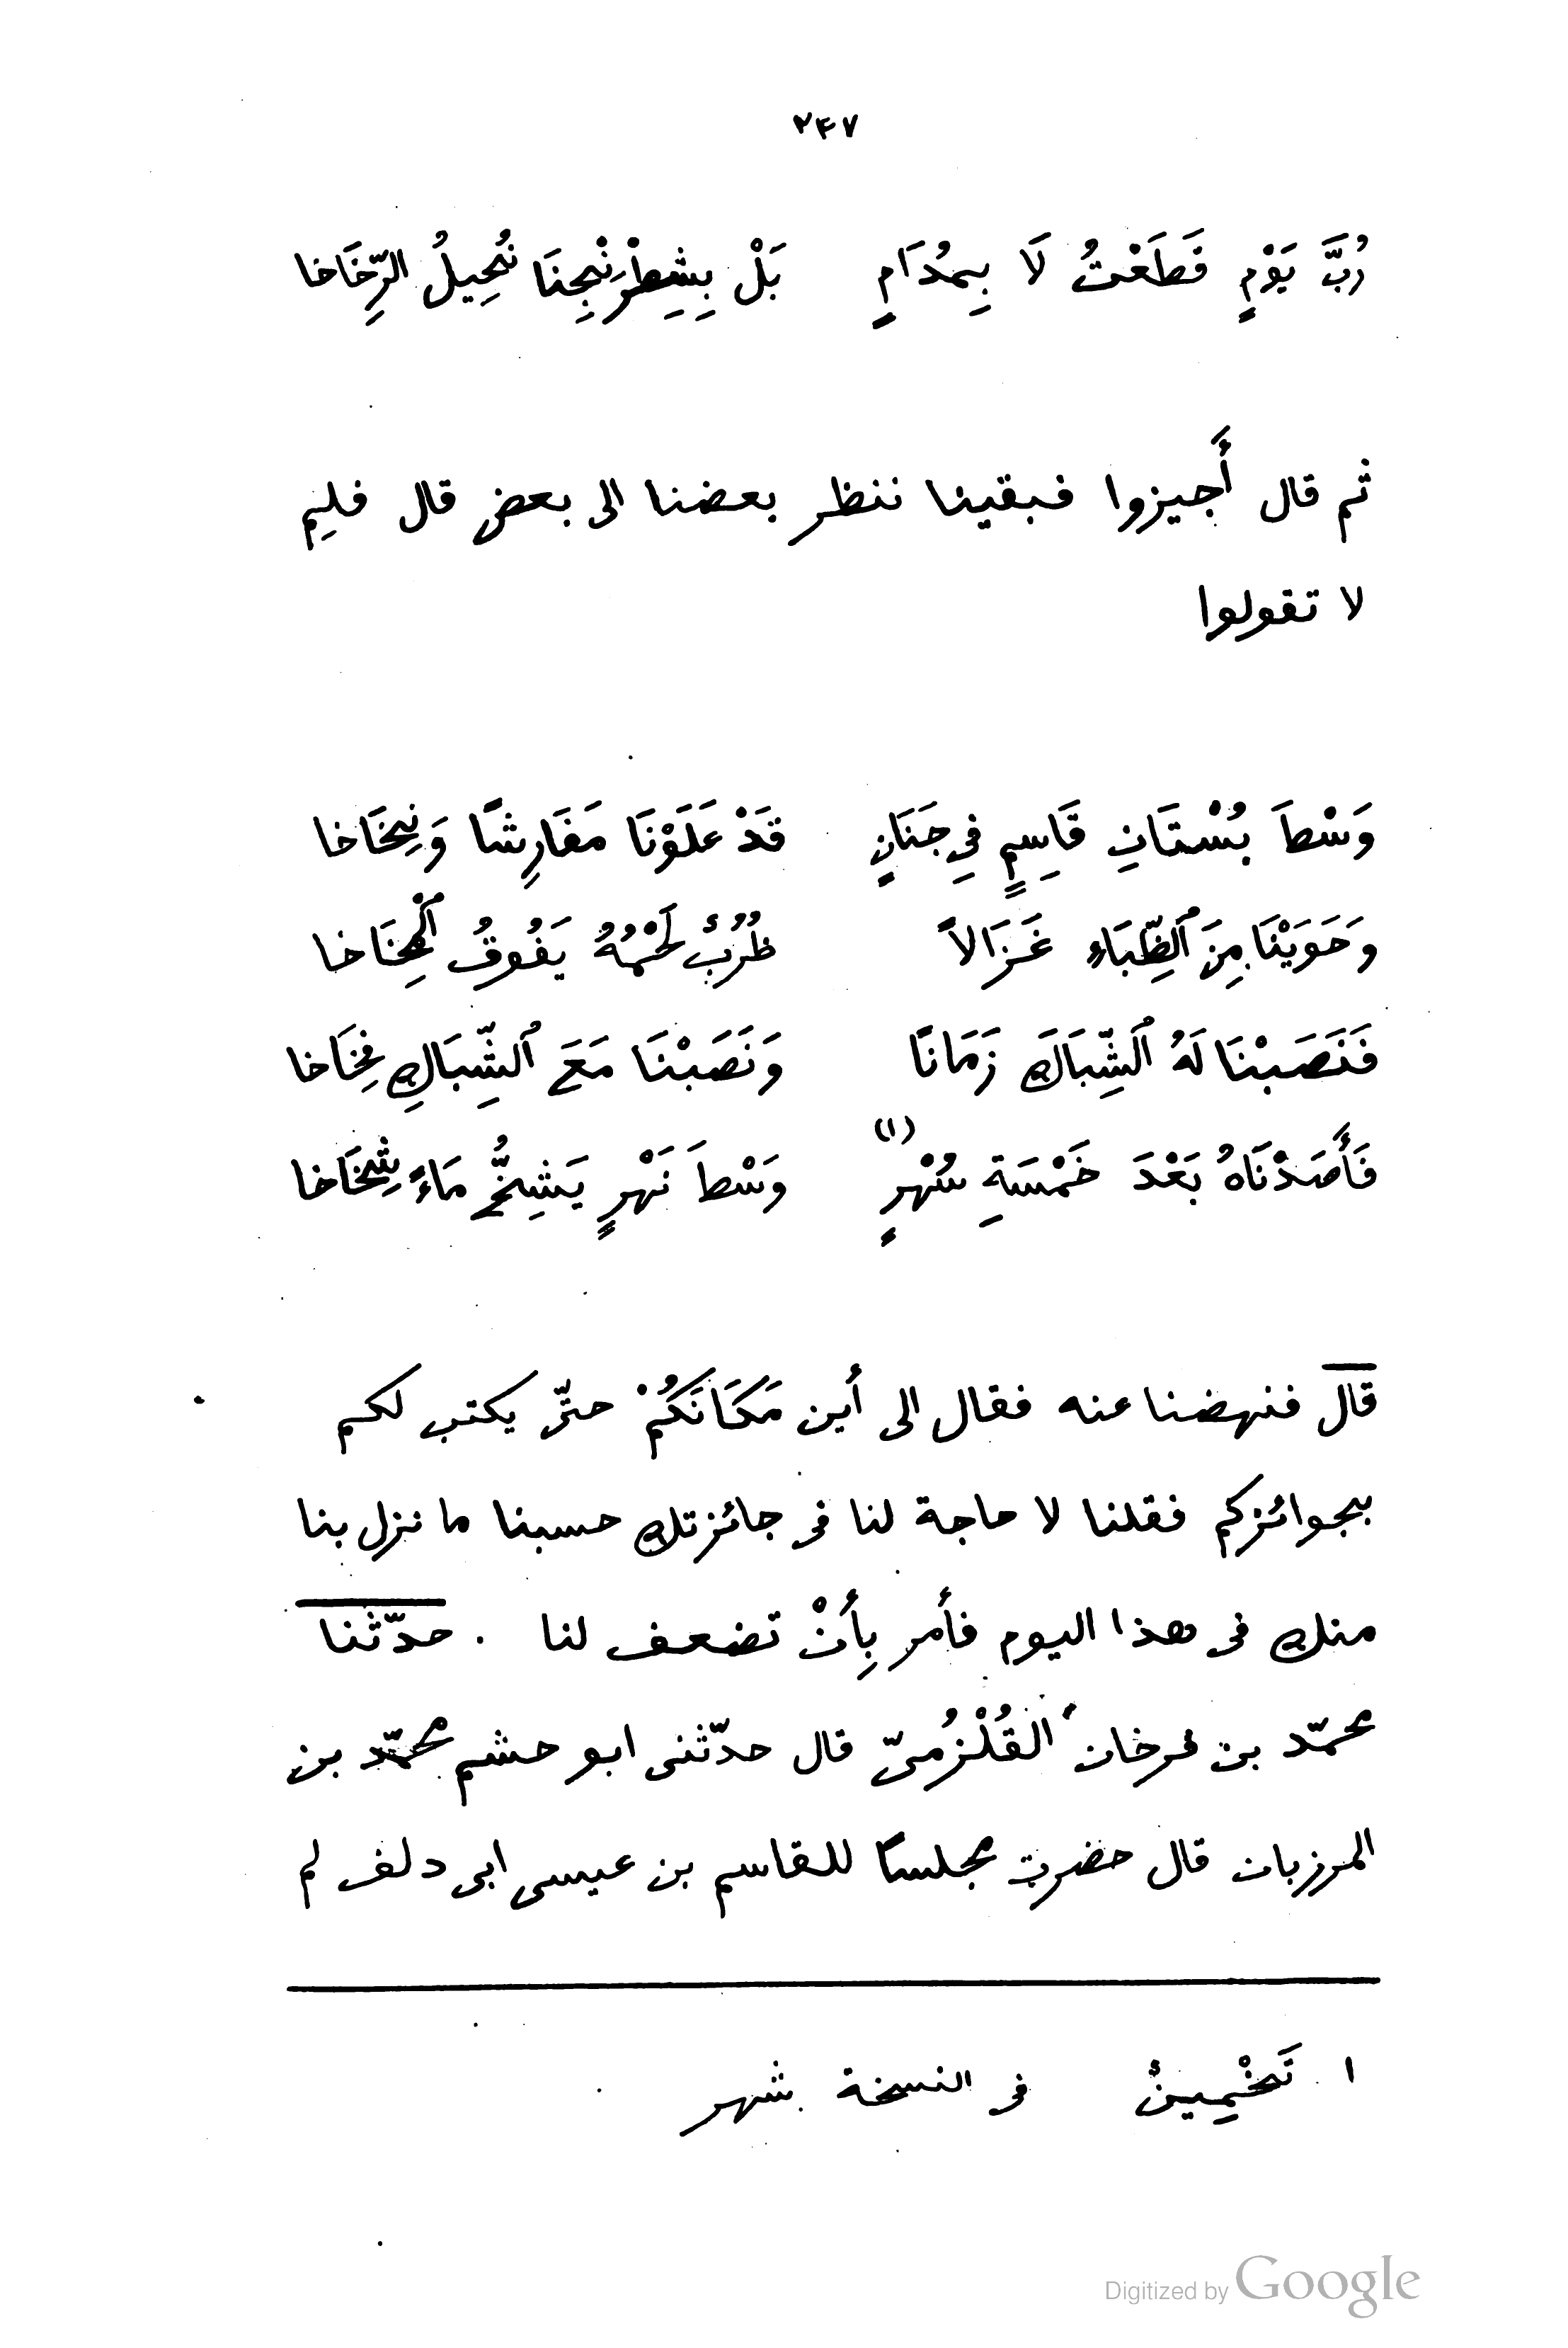 ٢٤٧
رُبَّ يَوْمٍ قَطَعْتُ لَا بِمُدَامٍ بَلْ بِشِطْرَنْجِنَا نُحِيلُ الرِّخَاخا
ثم قال أَجيزوا فبقينا ننظر بعضنا الى بعض قال فلِم
لا تقولوا
وَسْطَ بُسْتَانِ قَاسِمٍ فِي جَنَانٍ قَدْ عَلَوْنَا مَفَارِشًا وَنِخَاخا
وَحَوَيْنَا مِنَ ٱلظِّبَاءِ غَزَالاً طُرُبٌ لَحْمُهُ يَفُوقُ ٱلْمِخَاخا
فَنَصَبْنَا لَهُ ٱلشِّبَاكَ زَمَانًا وَنَصَبْنَا مَعَ ٱلشِّبَاكِ فِخَاخا
فَأَصَدْنَاهُ بَعْدَ خَمْسَةِ شُهْرٍ (١) وَسْطَ نَهْرٍ يَشِخُّ مَاءً شِخَاخا
قال فنهضنا عنه فقال الى أين مَكَانَكُمْ حتّى يكتب لكم
بجوائزكم فقلنا لا حاجة لنا فى جائزتك حسبنا ما نزل بنا
منك فى هذا اليوم فأمر بِأَنْ تضعف لنا . حدّثنا
محمّد بن فرخان القُلْزُمىّ قال حدّثنى ابو حشم محمّد بن
المرزبان قال حضرت مجلسًا للقاسم بن عيسى ابى دلف لم
١ تَخْمِينٌ فى النسخة شهر
Digitized by Google